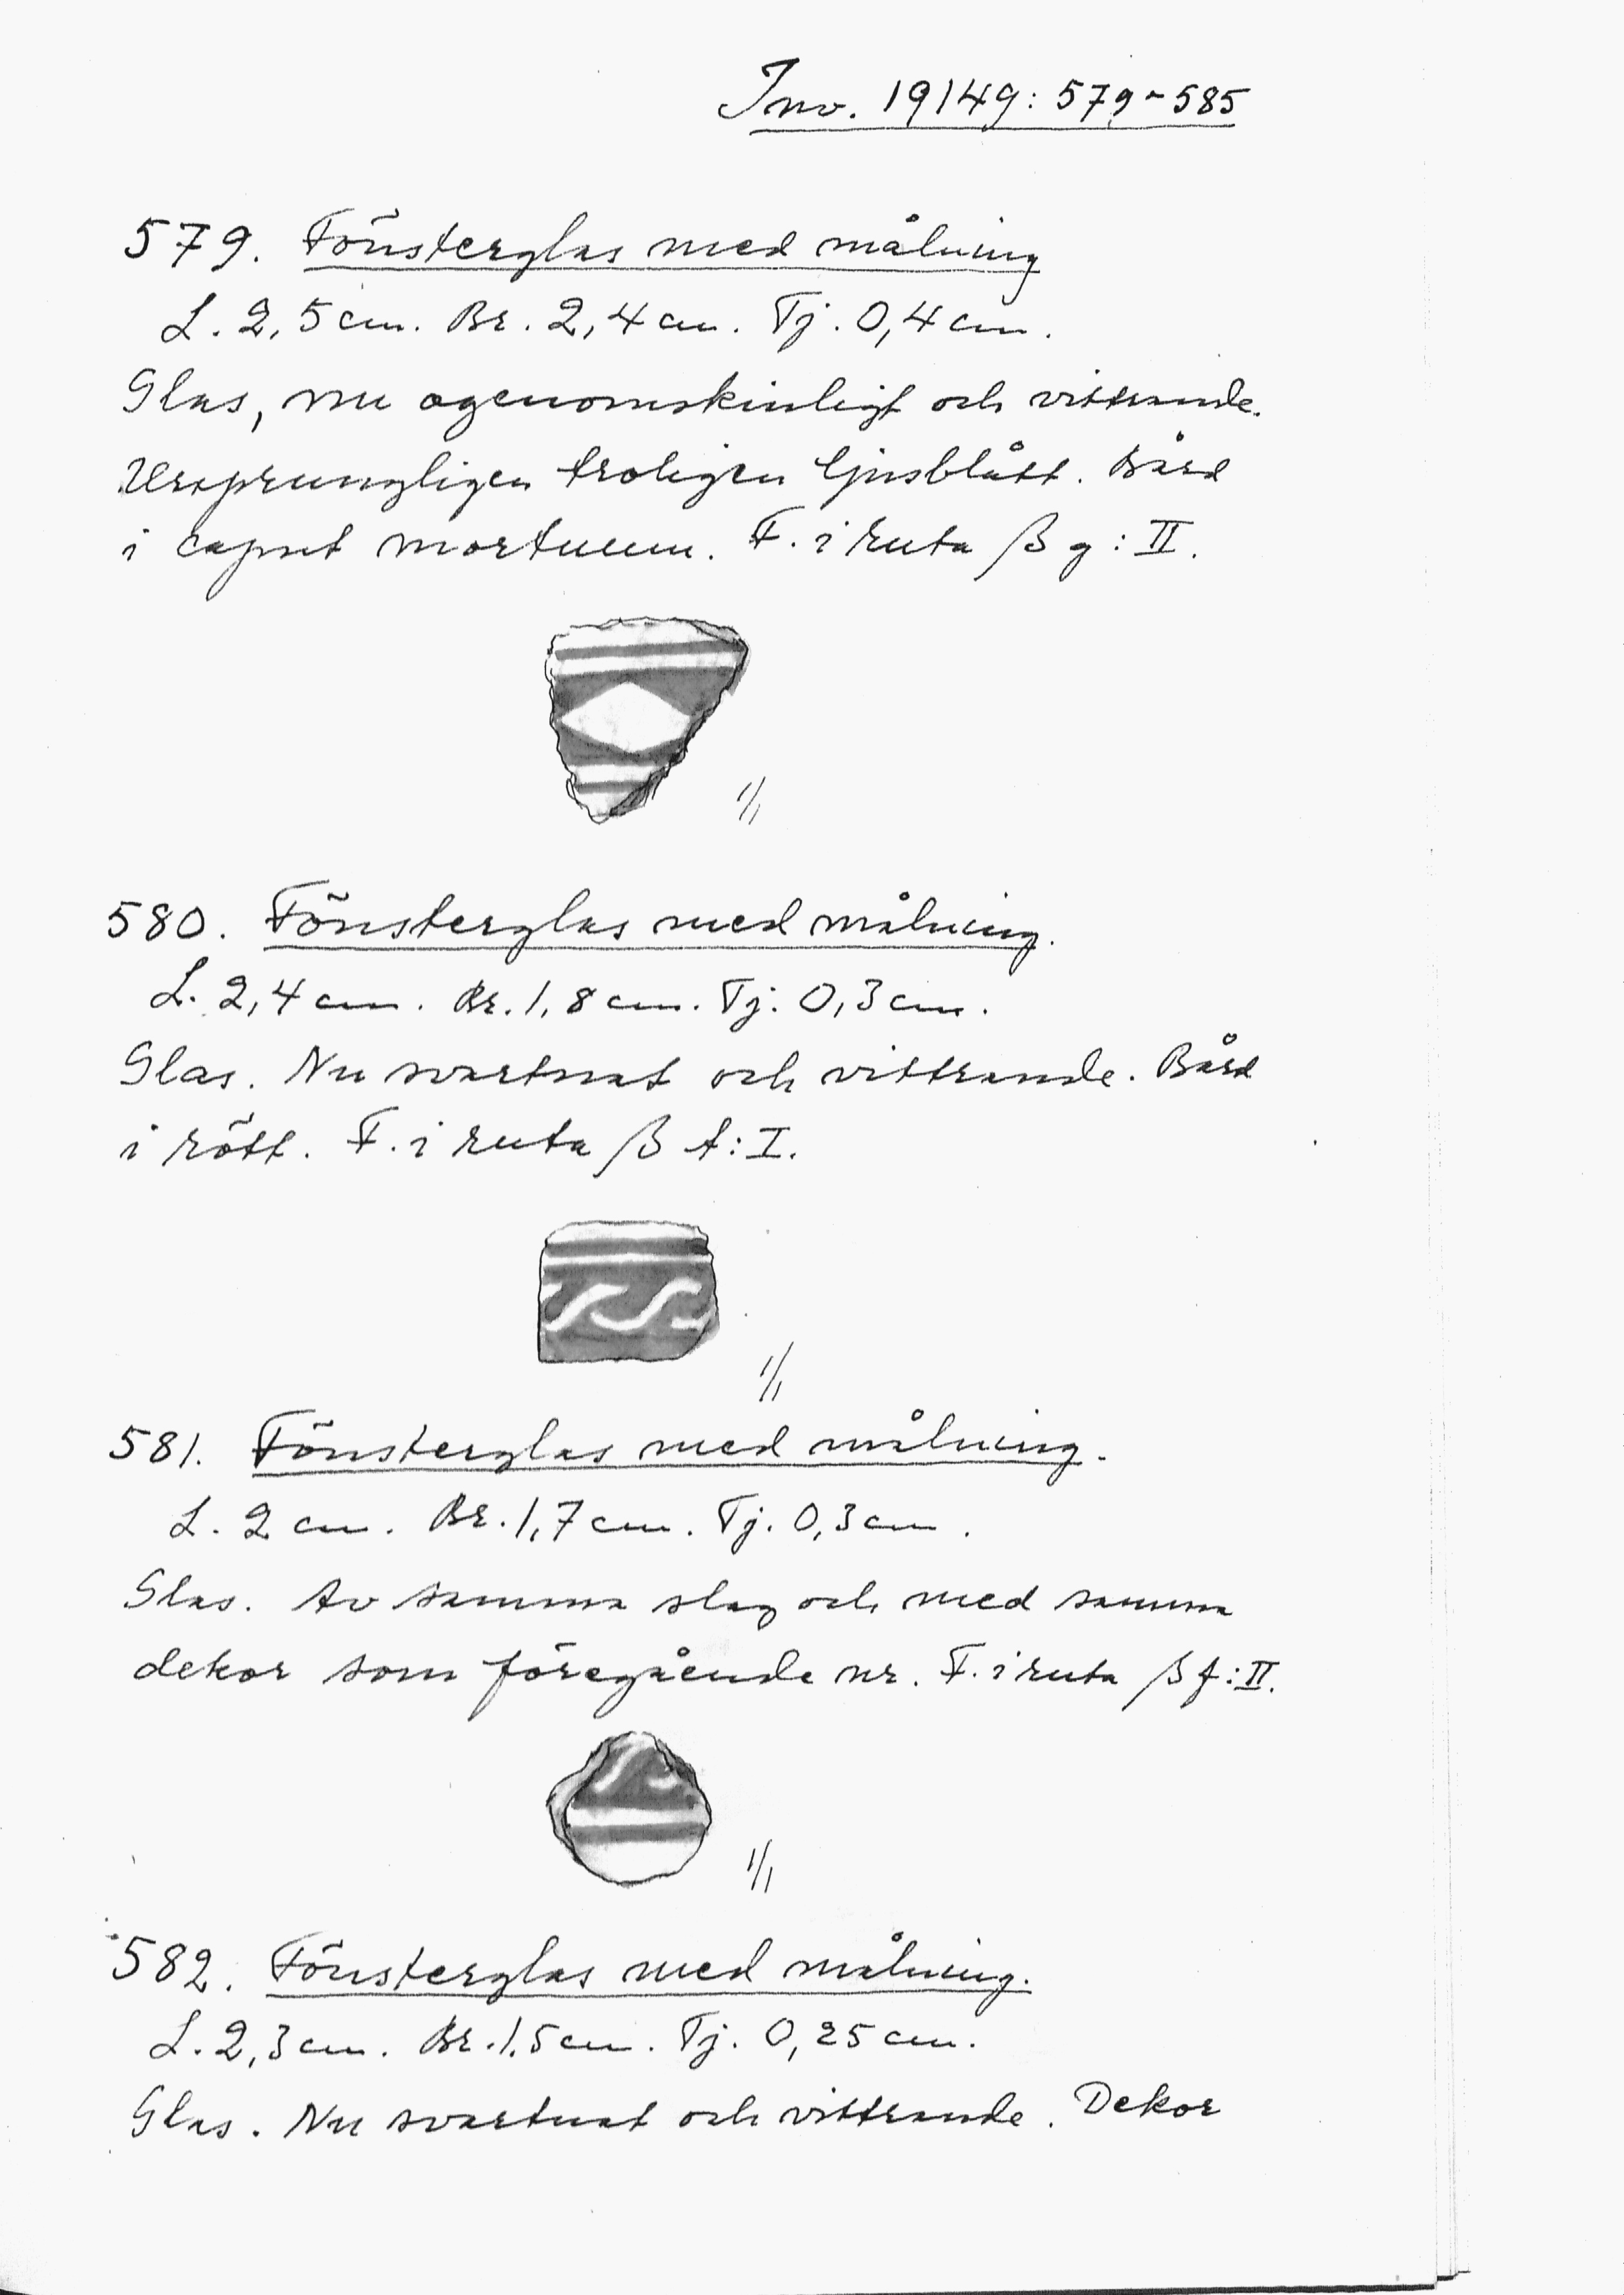 Inv. 19149:579-585
579. Fönsterglas med målning
L. 2,5 cm. Br. 2,4 cm. Tj. 0,4 cm.
Glas, nu ogenomskinligt och vittrande.
Ursprungligen troligen ljusblått. Bård
i caput mortuum. F. i ruta β g:II.
1/1
580. Fönsterglas med målning.
L. 2,4 cm. Br. 1,8 cm. Tj. 0,3 cm.
Glas. Nu svartnat och vittrande. Bård
i rött. F. i ruta β f:I.
1/1
581. Fönsterglas med målning.
L. 2 cm. Br. 1,7 cm. Tj. 0,3 cm.
Glas. Av samma slag och med samma
dekor som föregående nr. F. i ruta β f:II.
1/1
582. Fönsterglas med målning.
L. 2,3 cm. Br. 1,5 cm. Tj. 0,25 cm.
Glas. Nu svartnat och vittrande. Dekor